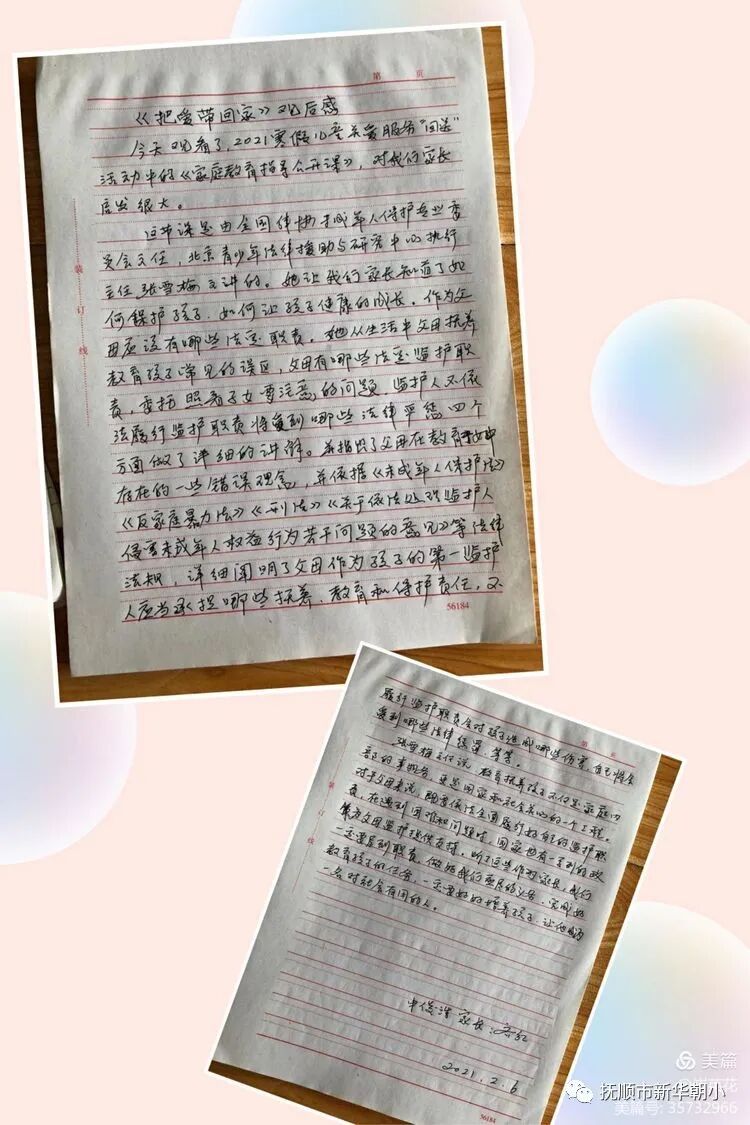 第 页
《把爱带回家》观后感
今天观看了,2021寒假儿童关爱服务“同送”
活动中的《家庭教育指导公开课》,对我们家长
启发很大。
这节课是由全国律协未成年人保护专业委
员会主任,北京青少年法律援助与研究中心执行
主任张雪梅主讲的。她让我们家长知道了如
何保护孩子,如何让孩子健康的成长。作为父
母应该有哪些法定职责。她从生活中父母抚养
教育孩子常见的误区,父母有哪些法定监护职
责,委托照看子女要注意的问题,监护人不依
法履行监护职责将受到哪些法律平惩四个
方面做了详细的讲解。并指出了父母在教育中
存在的一些错误理念,并依据《未成年人保护法》
《反家庭暴力法》《刑法》《关于依法处理监护人
侵害未成年人权益行为若干问题的意见》等法律
法规,详细阐明了父母作为孩子的第一监护
人应当承担哪些抚养、教育和保护责任,不
装 订 线
56184
第 页
履行监护职责会对孩子造成哪些伤害,自己将会
受到哪些法律惩罚,等等。
张雪梅主任说,教育抚养孩子不仅是家庭内
部的事务,更是国家和社会关心的一个工程。
对于父母来说,既要依法全面履行好自己的监护职
责,在遇到困难和问题时,国家也有一系列的政
策为父母监护提供支持。听了这些作为家长,我们
一定要尽到职责,做好我们应尽的义务,完成好
教育孩子的任务,一定要好好培养孩子,让他成为
一名对社会有用的人。
家长:
2021.2.6
装 订 线
56184
美篇
抚顺市新华朝小
美篇号: 35732966